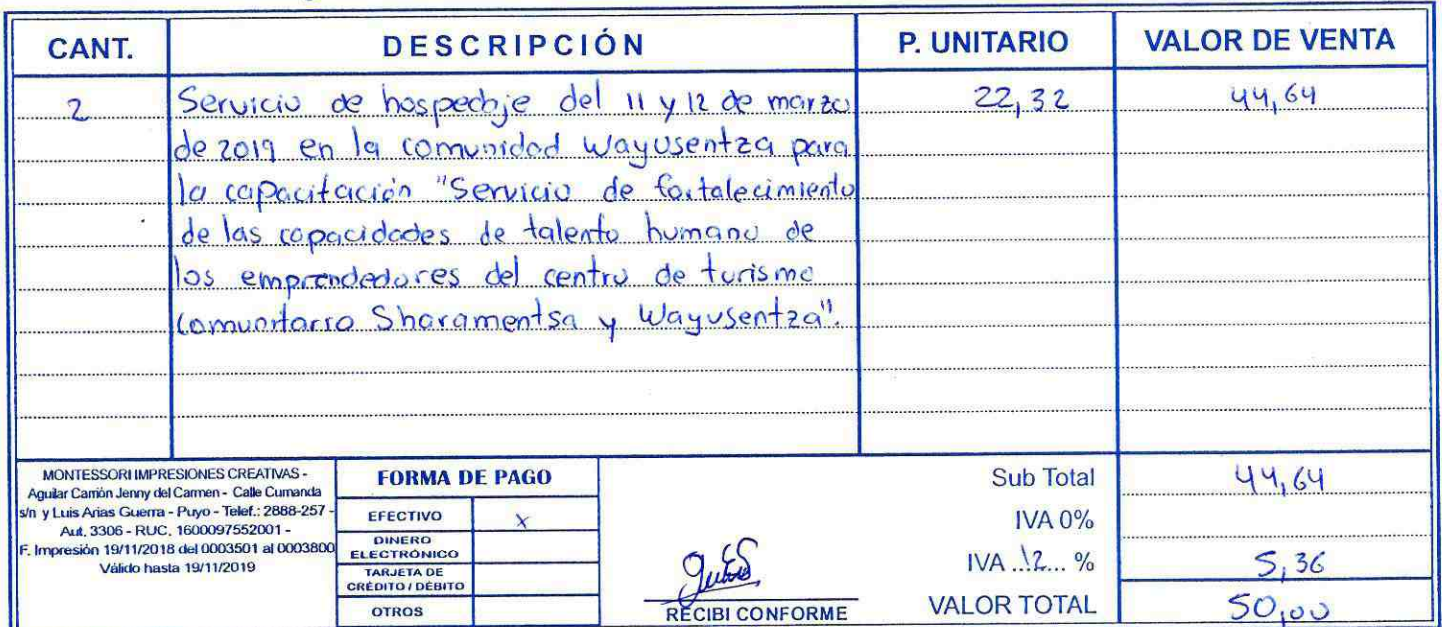 CANT. DESCRIPCIÓN P. UNITARIO VALOR DE VENTA
2 Servicio de hospedaje del 11 y 12 de marzo 22,32 44,64
de 2019 en la comunidad Wayusentza para
la capacitación "Servicio de fortalecimiento
de las capacidades de talento humano de
los emprendedores del centro de turismo
Comunitario Sharamentsa y Wayusentza".
MONTESSORI IMPRESIONES CREATIVAS -
Aguilar Carrión Jenny del Carmen - Calle Cumanda
s/n y Luis Arias Guerra - Puyo - Telef.: 2888-257 -
Aut. 3306 - RUC. 1600097552001 -
F. Impresión 19/11/2018 del 0003501 al 0003800
Válido hasta 19/11/2019
FORMA DE PAGO
EFECTIVO X
DINERO
ELECTRÓNICO
TARJETA DE
CRÉDITO / DÉBITO
OTROS
RECIBI CONFORME
Sub Total 44,64
IVA 0%
IVA ..12... % 5,36
VALOR TOTAL 50,00